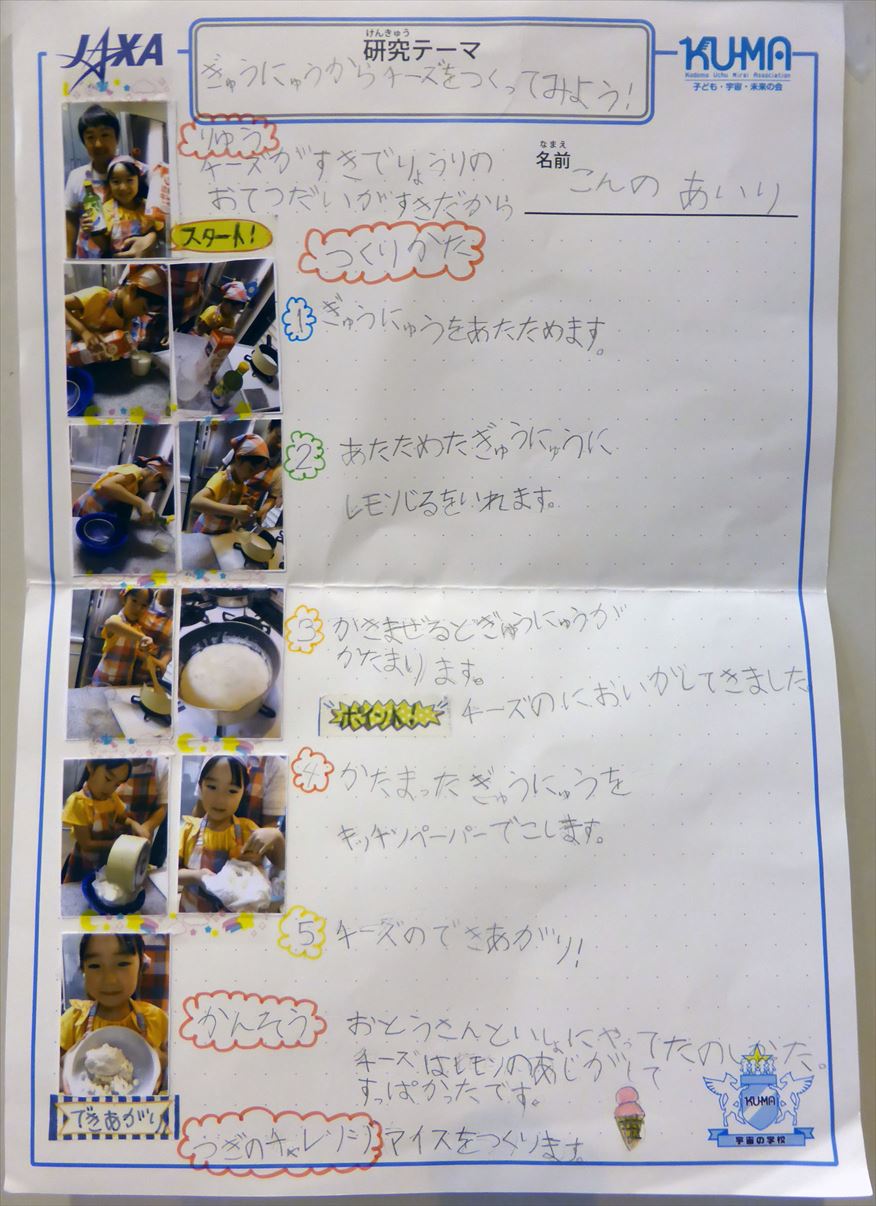 JAXA
けんきゅう
研究テーマ
ぎゅうにゅうからチーズをつくってみよう!
KU-MA
Kodomo Uchu Mirai Association
子ども・宇宙・未来の会
りゆう
チーズがすきでりょうりの
おてつだいがすきだから
なまえ
名前
こんの あいり
スタート!
つくりかた
1 ぎゅうにゅうをあたためます。
2 あたためたぎゅうにゅうに
レモンじるをいれます。
3 かきまぜるとぎゅうにゅうが
かたまります。
ポイント! チーズのにおいがしてきました
4 かたまったぎゅうにゅうを
キッチンペーパーでこします。
5 チーズのできあがり!
かんそう
おとうさんといっしょにやってたのしかた。
チーズはレモンのあじがして
すっぱかったです。
できあがり
つぎのチャレンジ アイスをつくります。
KUMA
宇宙の学校